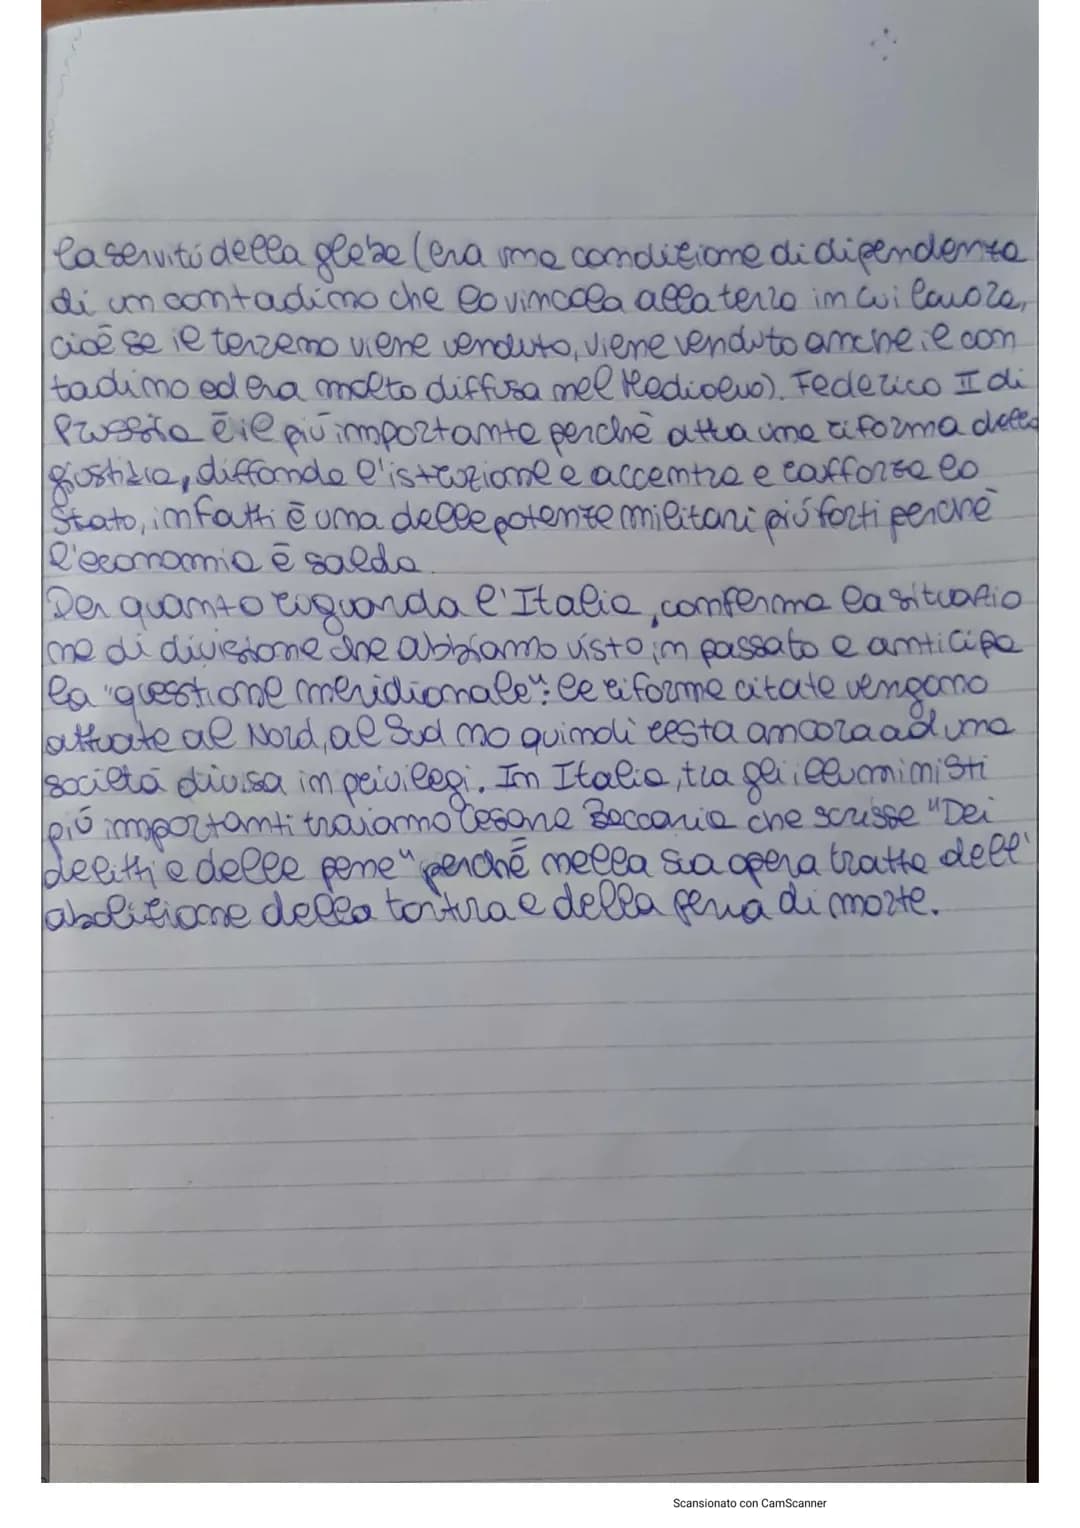 la servitù della glebe (era una condizione di dipendenza
di un contadino che lo vincola alla terra in cui lavora,
cioè se il terreno viene venduto, viene venduto anche il con
tadino ed era molto diffusa nel Medioevo). Federico II di
Prussia è il più importante perché attua una riforma della
giustizia, diffonde l'istruzione e accentra e rafforza lo
Stato, infatti è una delle potenze militari più forti perché
l'economia è salda.
Per quanto riguarda l'Italia, conferma la situazio
ne di divisione che abbiamo visto in passato e anticipa
la "questione meridionale": le riforme citate vengono
attuate al Nord, al Sud no quindi resta ancora ad una
società divisa in privilegi. In Italia, tra gli illuministi
più importanti troviamo Cesare Beccaria che scrisse "Dei
delitti e delle pene" perché nella sua opera tratta dell'
abolizione della tortura e della pena di morte.
Scansionato con CamScanner